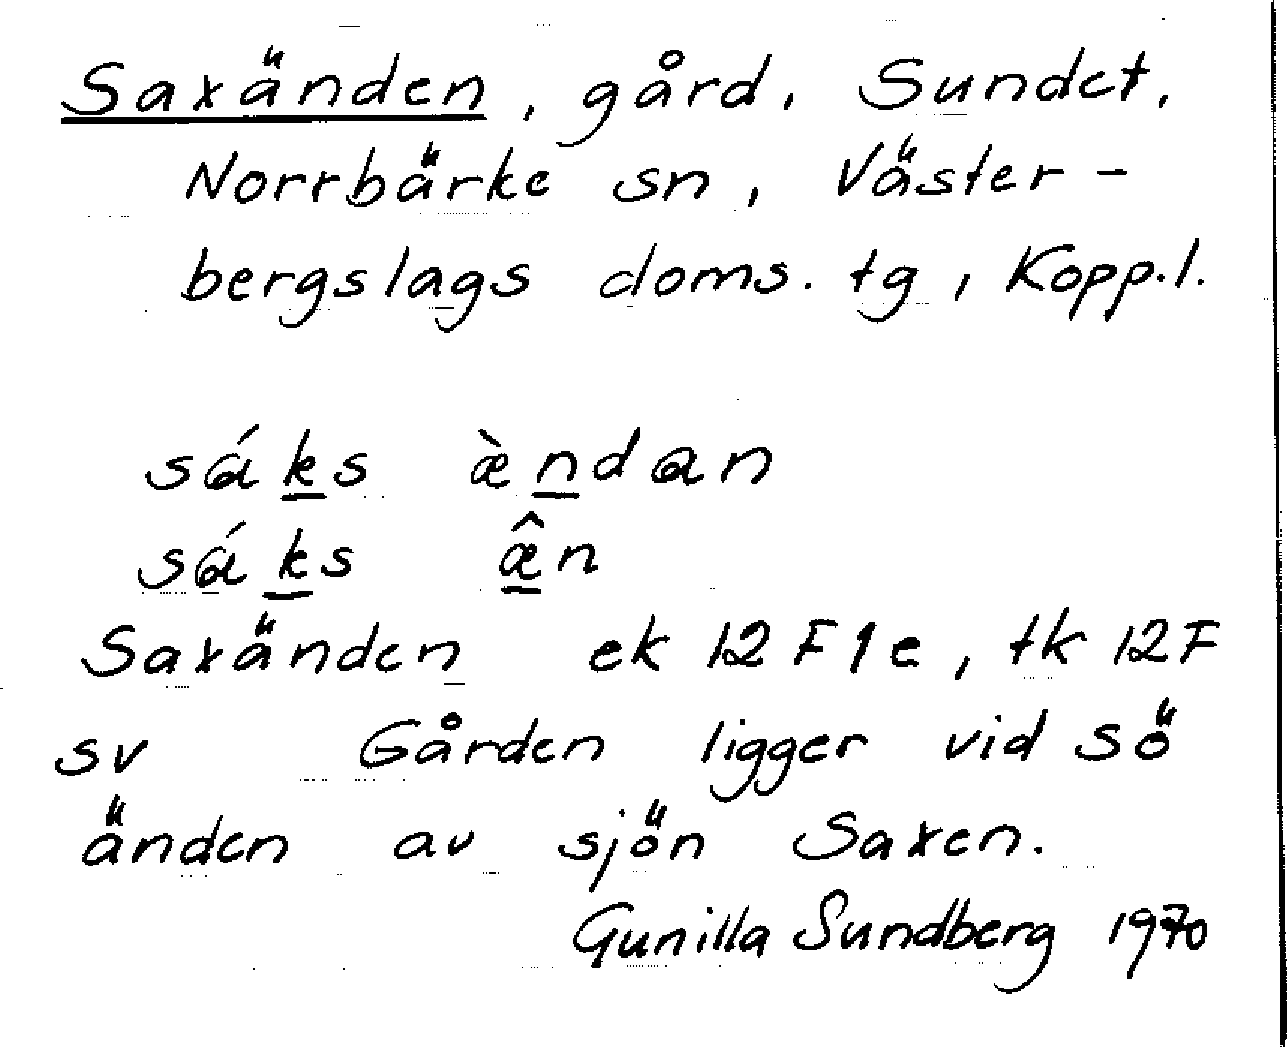 Saxänden, gård, Sundet,
Norrbärke sn, Väster-
bergslags doms. tg, Kopp.l.
sáks æ̀ndan
sáks æ̂n
Saxänden ek 12F1e, tk 12F
sv Gården ligger vid sö
änden av sjön Saxen.
Gunilla Sundberg 1970